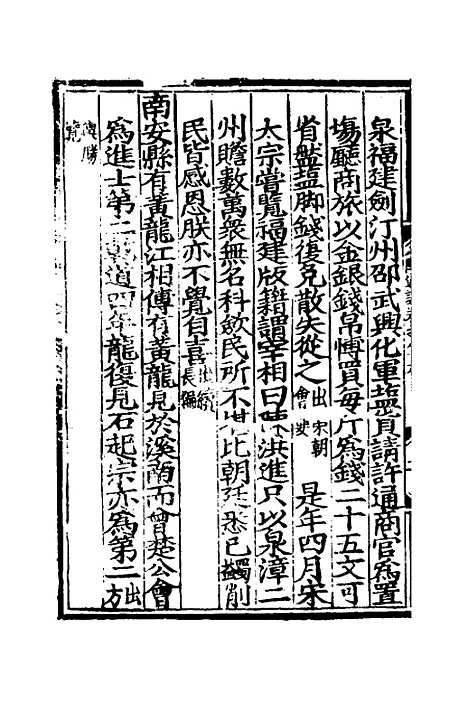 泉福建劍汀州邵武興化軍鹽貨請許通商官爲置
塲聽商旅以金銀錢帛愽買每斤爲錢二十五文可
省盤塩脚錢復免散失從之出宋朝會要 是年四月宋
太宗嘗覽福建版籍謂宰相曰陳洪進只以泉漳二
州贍數萬衆無名科歛民所不堪比朝廷悉已蠲削
民皆感恩朕亦不覺自喜出續長編
南安縣有黃龍江相傳有黃龍見於溪南而曾楚公會
爲進士第二 道四年龍復見石起宗亦爲第二出方
輿勝覽